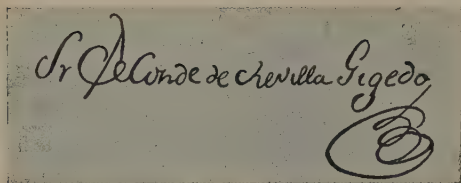 Sr Conde de Revilla Gigedo